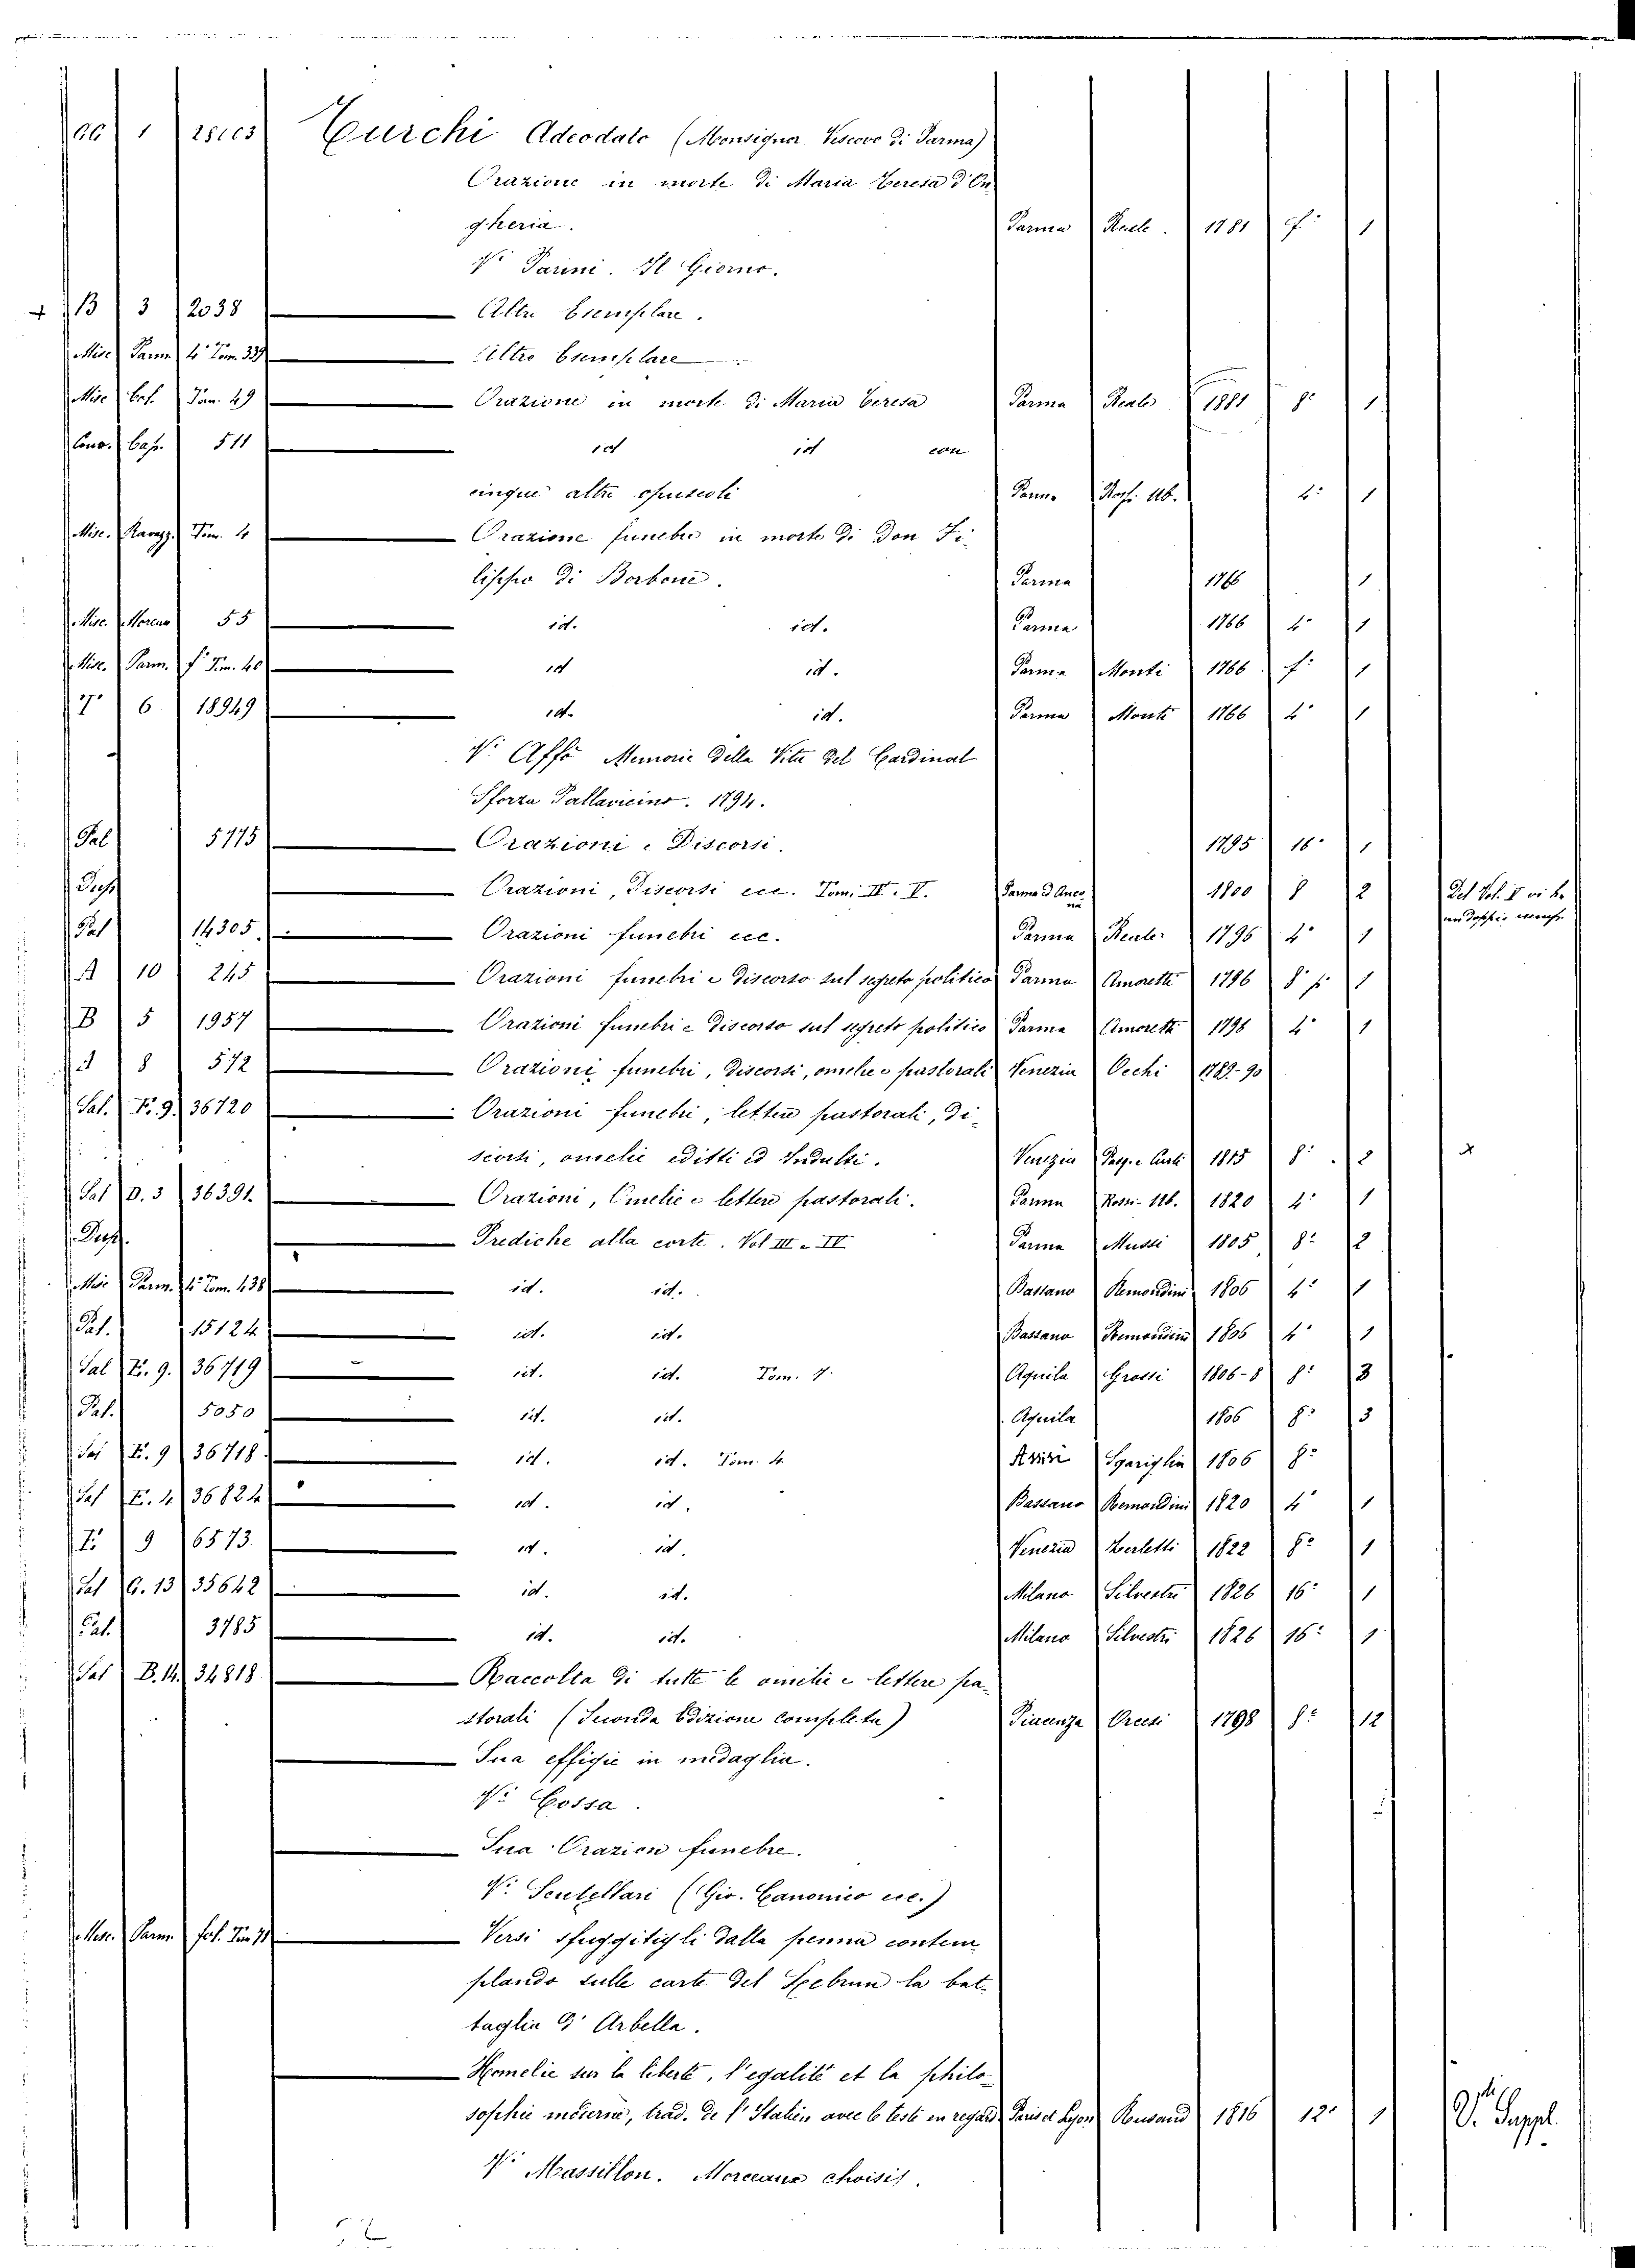 1 Turchi Adeodato (Monsignor Vescovo di Parma)
Orazione in morte di Maria Teresa d'On
gheria. Parma Reale. 1781 f.º 1
Vi Parini. Il Giorno.
+ B 3 2038 Altro Esemplare.
Misc. Parm. 4º Tom. 339 Altro Esemplare
Misc. Tom. 49 Orazione in morte di Maria Teresa Parma Reale 1881 8º 1
Cap. 511 id id con
cinque altri opuscoli Parma 4º 1
Misc. Tom. 4 Orazione funebre in morte di Don Fi-
lippo di Borbone. Parma 1766 1
Misc. Moreau 55 id. id. Parma 1766 4º 1
Misc. Parm. fº Tom. 40 id id. Parma Monti 1766 f.º 1
7º 6 18949 id. id. Parma Monti 1766 4º 1
Vi Affò Memorie della Vita del Cardinal
Sforza Pallavicino. 1794.
Pal 5775 Orazioni e Discorsi. 1795 16º 1
Orazioni, Discorsi ecc. Tomi IV. V. 1800 8 2 Del Vol. V vi
Pal 14305. Orazioni funebri ecc. Parma Reale 1796 4º 1
A 10 245 Orazioni funebri e Discorso sul segreto politico Parma Amoretti 1796 8º p. 1
B 5 1957 Orazioni funebri e Discorso sul segreto politico Parma Amoretti 1796 4º 1
A 8 572 Orazioni funebri, Discorsi, omelie e pastorali Venezia 1789-90
Sal. F. 9. 36720 Orazioni funebri, lettere pastorali, di-
scorsi, omelie editti ed Indulti. Venezia 1815 8º 2
Sal D. 3 36391. Orazioni, Omelie e lettere pastorali. Parma Rossi-Ub. 1820 4º 1
Prediche alla corte. Vol III e IV Parma Mussi 1805 8º 2
Misc Parm. 4º Tom. 138 id. id. Bassano Remondini 1806 4º 1
Pal. 15124 id. id. Bassano Remondini 1806 4º 1
Sal F. 9. 36719 id. id. Tom. 7. Aquila Grossi 1806-8 8º 3
Pal. 5050 id. id. Aquila 1806 8º 3
Sal F. 9 36718. id. id. Tom. 4 Assisi Sgariglia 1806 8º
Sal F. 4 36824 id. id. Bassano Remondini 1820 4º 1
F. 9 6573. id. id. Venezia Zerletti 1822 8º 1
Sal G. 13 35642 id. id. Milano Silvestri 1826 16º 1
Pal. 3785 id. id. Milano Silvestri 1826 16º 1
Sal B. 14. 34818 Raccolta di tutte le omelie e lettere pa-
storali (Seconda Edizione completa) Piacenza Orcesi 1798 8º 12
Sua effigie in medaglia.
Vi Cossa.
Sua Orazion funebre.
Vi Scutellari (Gio. Canonico ecc.)
Misc. Parm. fol. Tom 71 Versi sfuggitigli dalla penna contem
plando sulle carte del Lebrun la bat-
taglia d'Arbella.
Homelie sur la liberté, l'egalité et la philo-
sophie moderne, trad. de l'Italien avec le texte en regard Paris et Lyon Rusand 1816 12º 1 V. Suppl.
Vi Massillon. Morceaux choisis.